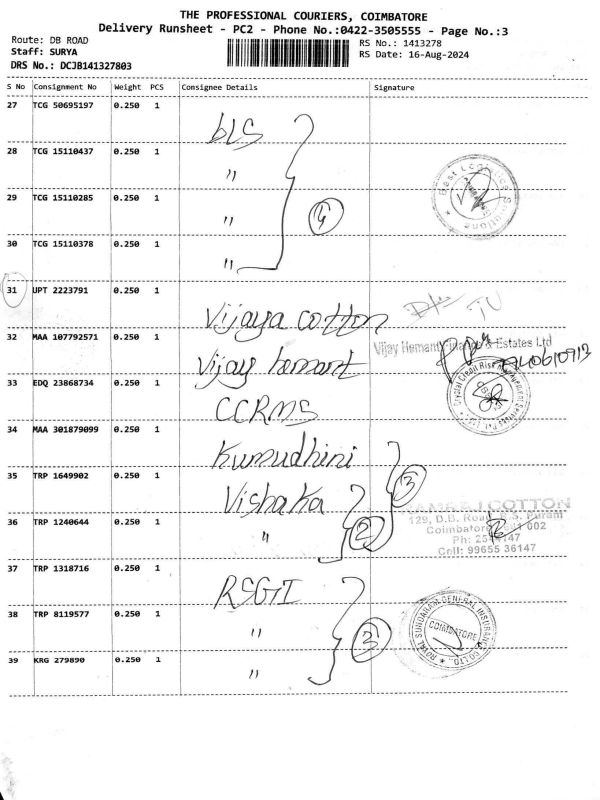 THE PROFESSIONAL COURIERS, COIMBATORE
Delivery Runsheet - PC2 - Phone No.:0422-3505555 - Page No.:3
Route: DB ROAD
RS No.: 1413278
Staff: SURYA
RS Date: 16-Aug-2024
DRS No.: DCJB141327803
S No Consignment No Weight PCS Consignee Details Signature
27 TCG 50695197 0.250 1 bLS
28 TCG 15110437 0.250 1 "
Best Logistics Solutions
29 TCG 15110285 0.250 1 "
4
30 TCG 15110378 0.250 1 "
31 UPT 2223791 0.250 1 Vijaya cotton
32 MAA 107792571 0.250 1 Vijay hemant
Vijay Hemant & Estates Ltd
33 EDQ 23868734 0.250 1 CCRMS
Crystal Credit Risk Management
34 MAA 301879099 0.250 1 Kumudhini
3
35 TRP 1649902 0.250 1 Vishaka
COTTON
129, D.B. Road, R.S. Puram
36 TRP 1240644 0.250 1 "
2
Coimbatore 002
Ph:
Cell: 99655 36147
37 TRP 1318716 0.250 1 RSGI
38 TRP 8119577 0.250 1 "
3
ROYAL SUNDARAM GENERAL INSURANCE CO LTD.,
COIMBATORE
39 KRG 279890 0.250 1 "